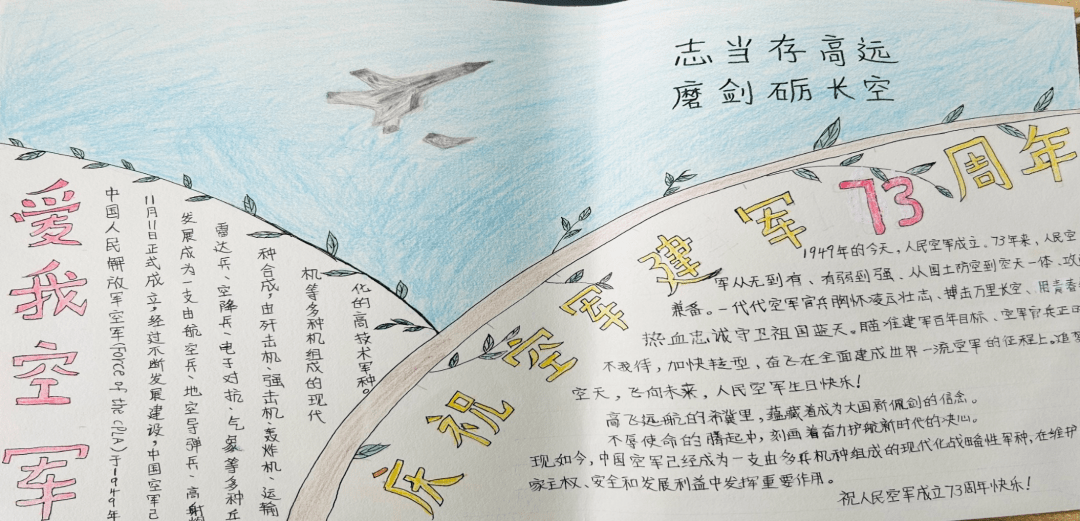 志当存高远
磨剑砺长空
爱我空军
中国人民解放军空军(Force of the cPLA)于1949年
11月11日正式成立,经过不断发展建设,中国空军已
发展成为一支由航空兵、地空导弹兵、高射炮
雷达兵、空降兵、电子对抗、气象等多种兵
种合成,由歼击机、强击机、轰炸机、运输
机等多种机组成的现代
化的高技术军种。
庆祝空军建军73周年
1949年的今天,人民空军成立。73年来,人民空
军从无到有、有弱到强、从国土防空到空天一体、攻
兼备。一代代空军官兵胸怀凌云壮志、搏击万里长空、用青春
热血忠诚守卫祖国蓝天。瞄准建军百年目标、空军官兵正
不我待,加快转型,奋飞在全面建成世界一流空军的征程上,追梦
空天,飞向未来,人民空军生日快乐!
高飞远航的希冀里,蕴藏着成为大国新佩剑的信念。
不辱使命的腾起中,刻画着奋力护航新时代的决心。
现如今,中国空军已经成为一支由多兵机种组成的现代化战略性军种,在维护
家主权、安全和发展利益中发挥重要作用。
祝人民空军成立73周年快乐!